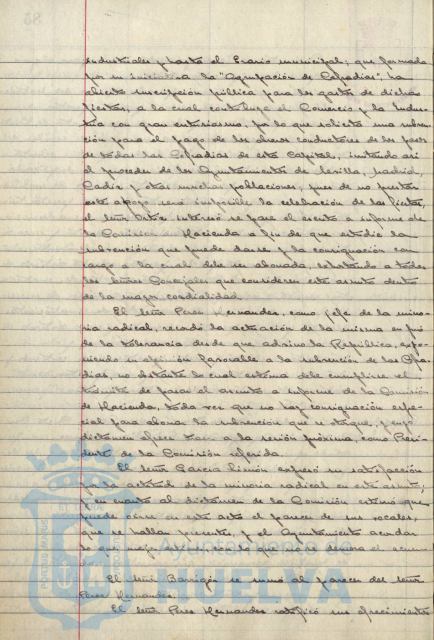 industriales y hasta el Erario municipal; que formada
por su iniciativa la "Agrupación de Cofradías", ha
abierto suscripción pública para los gastos de dichas
fiestas, a la cual contribuye el Comercio y la Indus-
tria con gran entusiasmo, por lo que solicita una subven-
ción para el pago de los obreros conductores de los pasos
de todas las Cofradías de esta Capital, imitando así
al proceder de los Ayuntamientos de Sevilla, Madrid,
Cadiz y otras muchas poblaciones, pues de no prestar
este apoyo será imposible la celebración de las fiestas,
el señor interesó se pase el escrito a informe de
la Comisión de Hacienda a fin de que estudie la
subvención que puede darse y la consignación con
cargo a la cual debe ser abonada, rogando a todos
los señores Concejales que consideren este asunto dentro
de la mayor cordialidad.
El señor Perez Hernandez, como jefe de la mino-
ria radical, recordó la actuación de la misma en pró
de la tolerancia desde que advino la República, expo-
niendo su opinión favorable a la subvención de las Cofra-
dias, no obstante lo cual estima debe cumplirse el
trámite de pasar el asunto a informe de la Comisión
de Hacienda, toda vez que no hay consignación espe-
cial para abonar la subvención que se otorgue, y cuyo
dictamen ofrece traer a la sesión próxima, como Presi-
dente de la Comisión referida.
El señor García Limón expresó su satisfacción
por la actitud de la minoria radical en este asunto;
y en cuanto al dictamen de la Comisión estima que
puede oirse en este acto el parecer de sus vocales,
que se hallan presentes, y el Ayuntamiento acordar
lo que mejor proceda, con lo que no se demora el acuer-
do.
El señor Barrigón se sumó al parecer del señor
Perez Hernandez.
El señor Perez Hernandez ratificó sus ofrecimientos
AYUNTAMIENTO DE
HUELVA